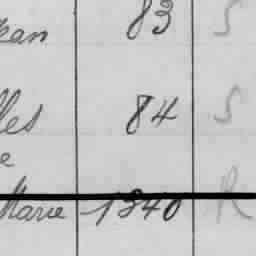 ean 83 S
lles 84 S
e
Marie 1340 R